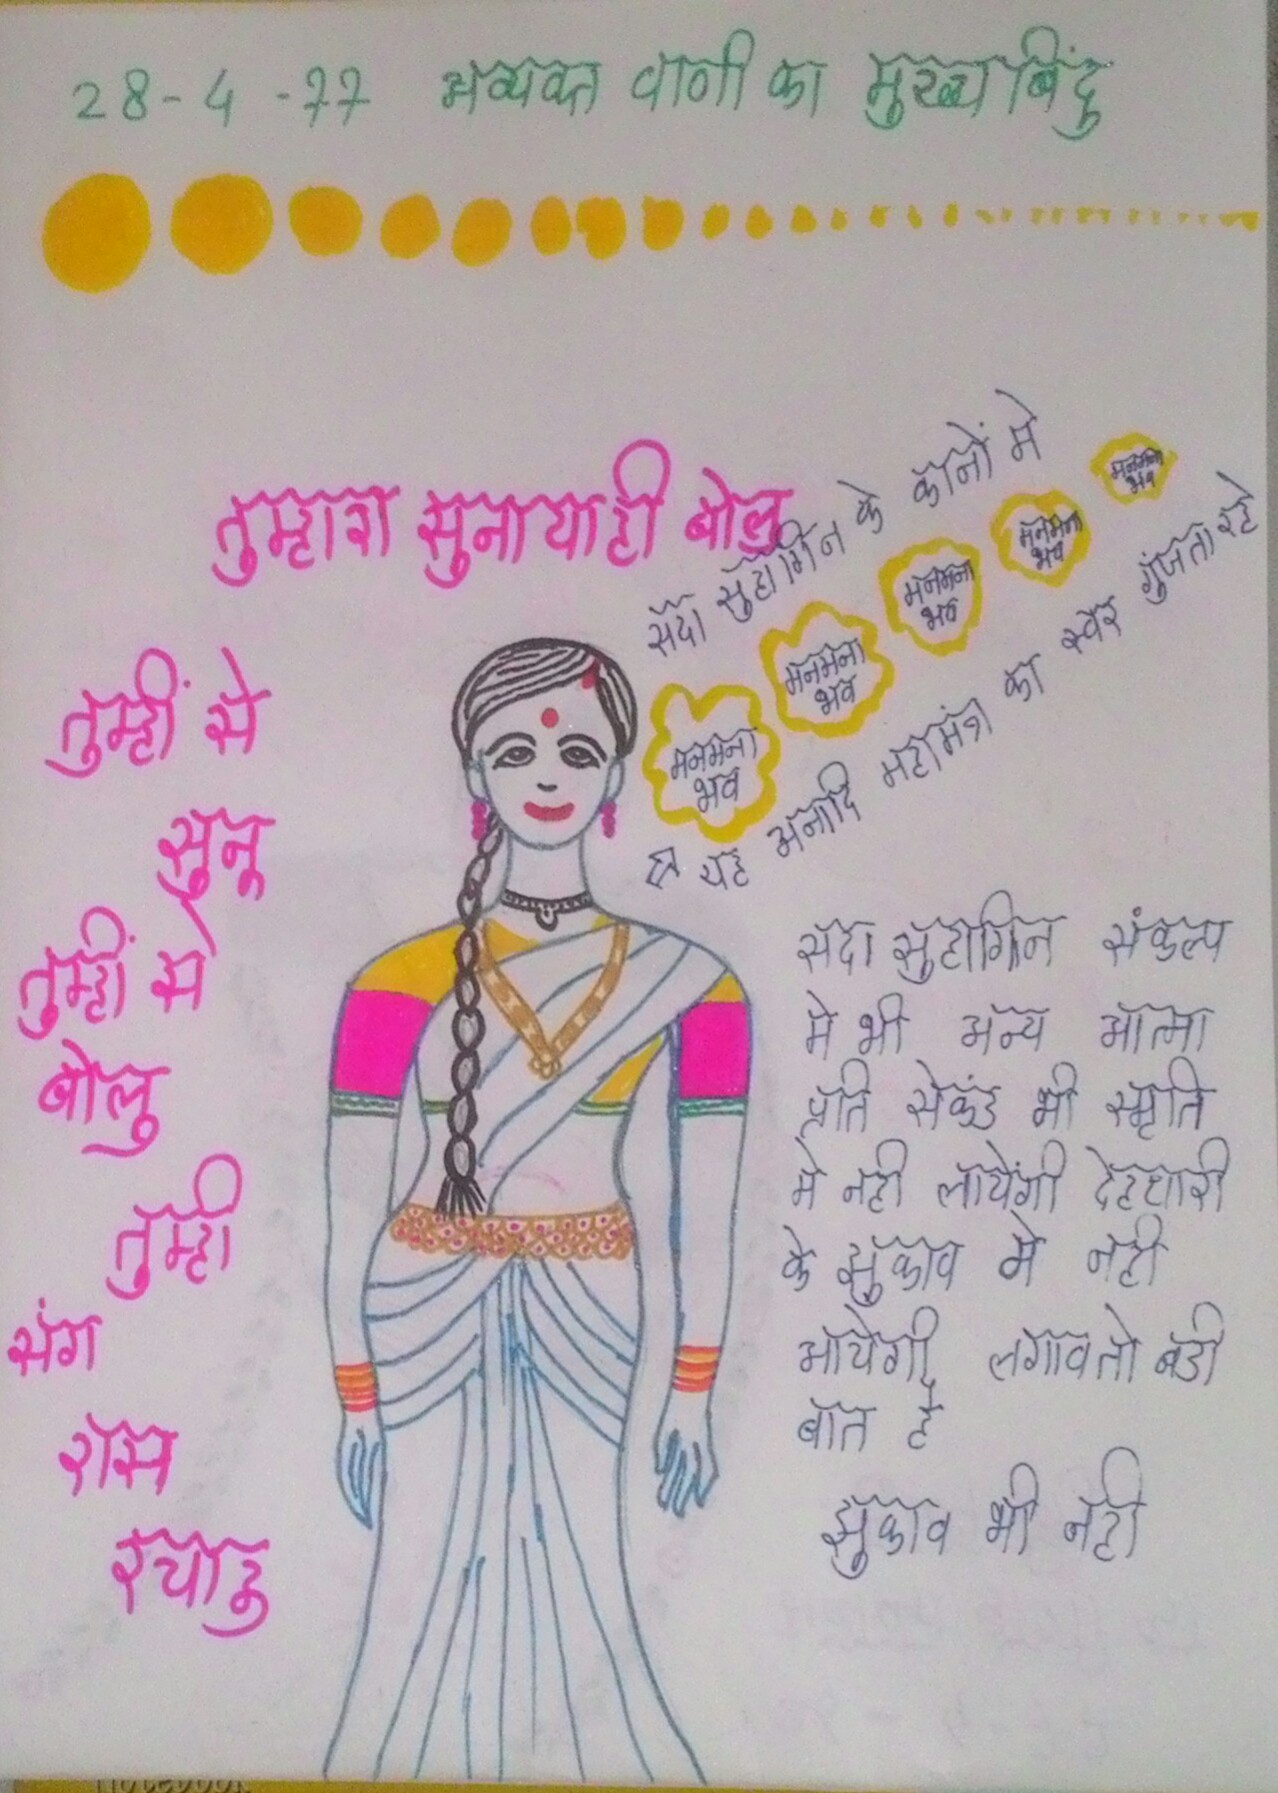 28-4-77 अव्यक्त वाणी का मुख्य बिंदु
तुम्हारा सुनाया ही बोलु
सदा सुहागिन के कानों मे
मनमना
भव
मनमना
भव
मनमना
भव
मनमना
भव
मनमना
भव
यह अनादि महामंत्र का स्वर गुंजता रहे
तुम्हीं से
सुनु
तुम्हीं से
बोलु
तुम्ही
संग
रास
रचाउ
सदा सुहागिन संकल्प
मे भी अन्य आत्मा
प्रति सेकंड भी स्मृति
मे नही लायेंगी देहधारी
के झुकाव मे नही
आयेगी लगाव तो बडी
बात है
झुकाव भी नही
Notebook